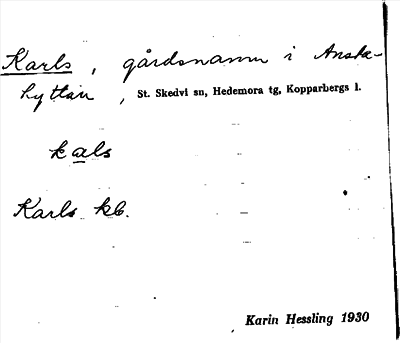 Karls, gårdsnamn i Anska-
hyttan, St. Skedvi sn, Hedemora tg, Kopparbergs l.
kals
Karls kb.
Karin Hessling 1930